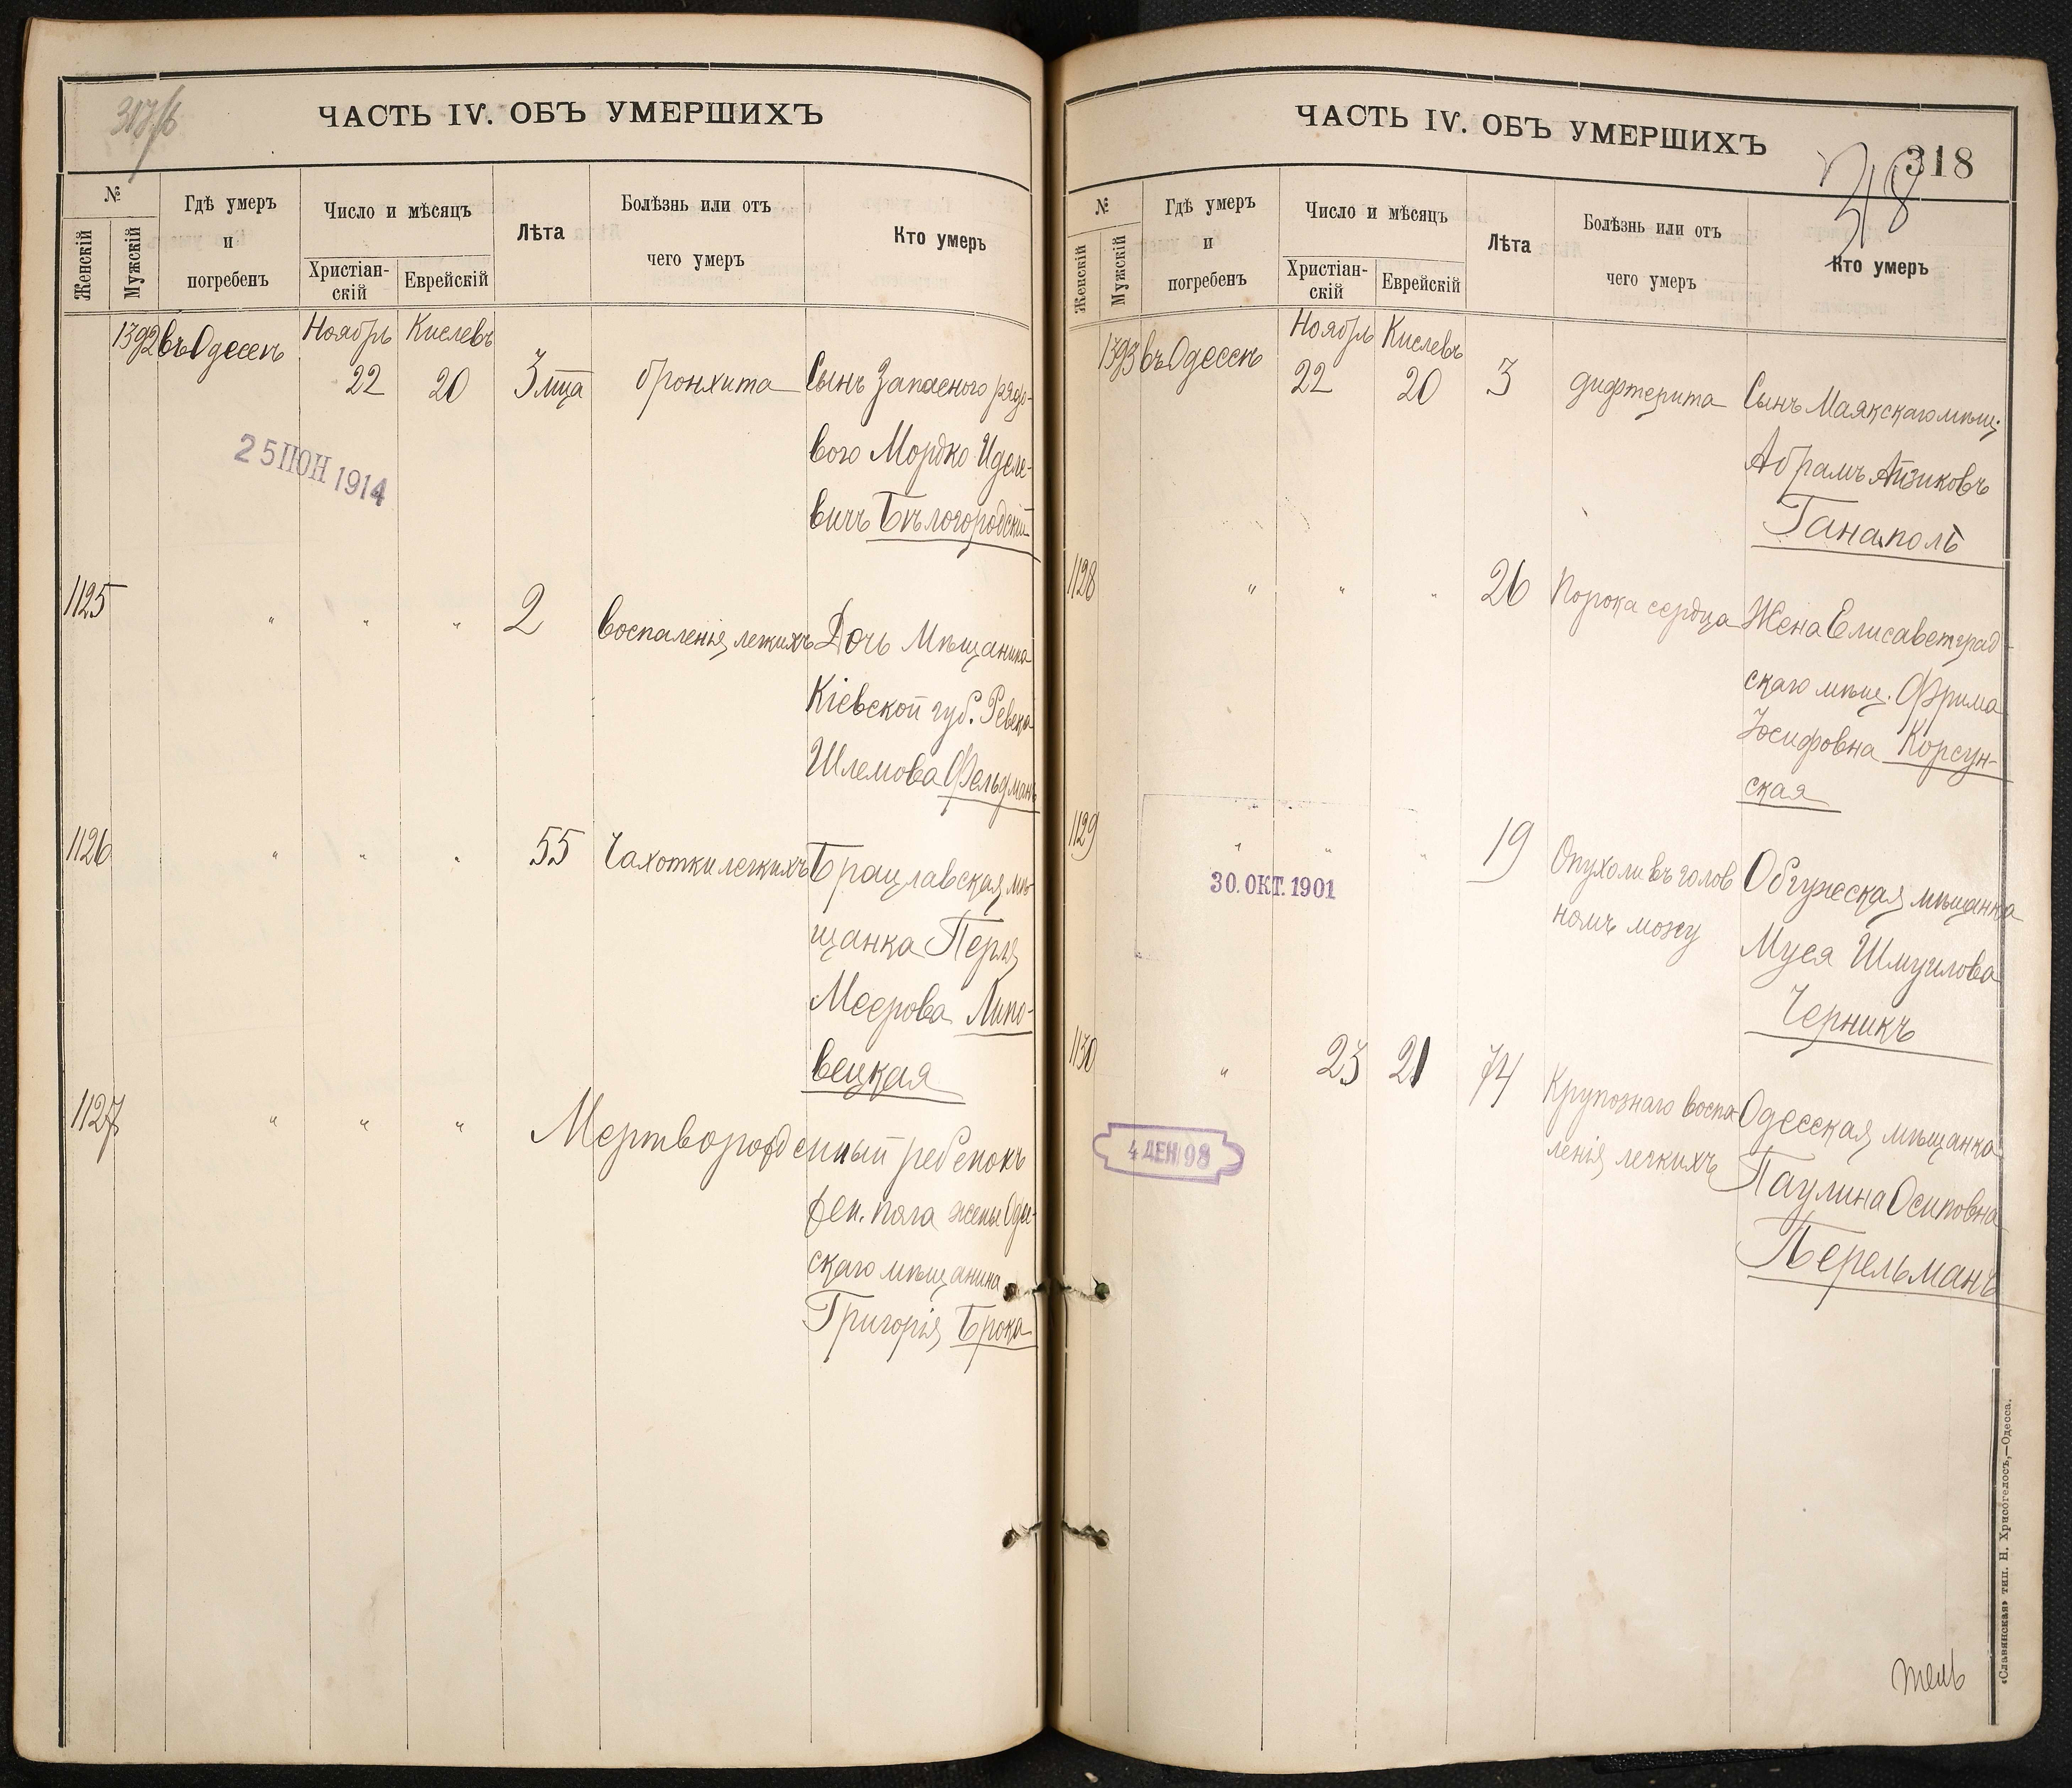 317/б
ЧАСТЬ IV. ОБЪ УМЕРШИХЪ
№
Женскій
Мужскій
Гдѣ умеръ
и
погребенъ
Число и мѣсяцъ
Христіан-
скій
Еврейскій
Лѣта
Болѣзнь или отъ
чего умеръ
Кто умеръ
1392 въ Одессѣ Ноябрь Кислевъ
22 20 3 мца бронхита Сынъ Запасного рядо-
25 ІЮН 1914
вого Мордко Иделе-
вичъ Бѣлогородскій
1125 " " " 2 Воспаленія легкихъ Дочь Мѣщанина
Кіевской губ. Ревека
Шлемова Фельдманъ
1126 " " " 55 Чахотки легкихъ Брацлавская мѣ-
щанка Перля
Меерова Липо-
вецкая
1127 " " " Мертворожденный ребенокъ
жен. пола жены Одес-
скаго мѣщанина
Григорія Брока
ЧАСТЬ IV. ОБЪ УМЕРШИХЪ
318
318
№
Женскій
Мужскій
Гдѣ умеръ
и
погребенъ
Число и мѣсяцъ
Христіан-
скій
Еврейскій
Лѣта
Болѣзнь или отъ
чего умеръ
Кто умеръ
1393 въ Одессѣ Ноябрь Кислевъ
22 20 3 дифтерита Сынъ Маякскаго мѣщ.
Абрамъ Айзиковъ
Ганаполь
1128 " " " 26 Порока сердца Жена Елисаветград-
скаго мѣщ. Фрима
Іосифовна Корсун-
ская
1129 " " " 19 Опухоли въ голов Обгужеская мѣщанка
30. ОКТ. 1901
номъ мозгу
Муся Шмуилова
Черникъ
1130 " 23 21 74 Крупознаго воспа Одесская мѣщанка
4 ДЕК 98
ленія легкихъ Паулина Осиповна
Перельманъ
тель
«Славянская» тип. Н. Хрисогелосъ,—Одесса.